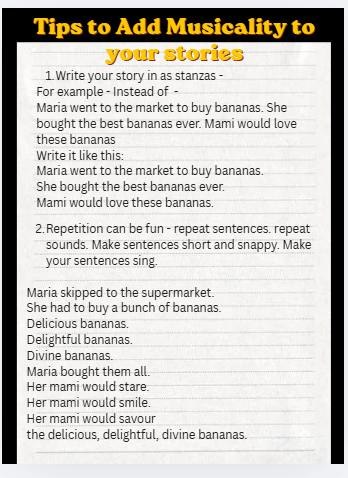 Tips to Add Musicality to
your stories
1. Write your story in as stanzas -
For example - Instead of  -
Maria went to the market to buy bananas. She
bought the best bananas ever. Mami would love
these bananas
Write it like this:
Maria went to the market to buy bananas.
She bought the best bananas ever.
Mami would love these bananas.
2. Repetition can be fun - repeat sentences. repeat
sounds. Make sentences short and snappy. Make
your sentences sing.
Maria skipped to the supermarket.
She had to buy a bunch of bananas.
Delicious bananas.
Delightful bananas.
Divine bananas.
Maria bought them all.
Her mami would stare.
Her mami would smile.
Her mami would savour
the delicious, delightful, divine bananas.